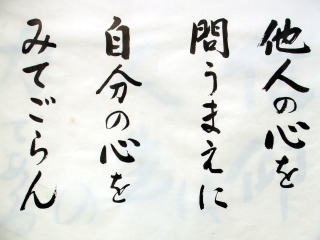 他人の心を
問うまえに
自分の心を
みてごらん